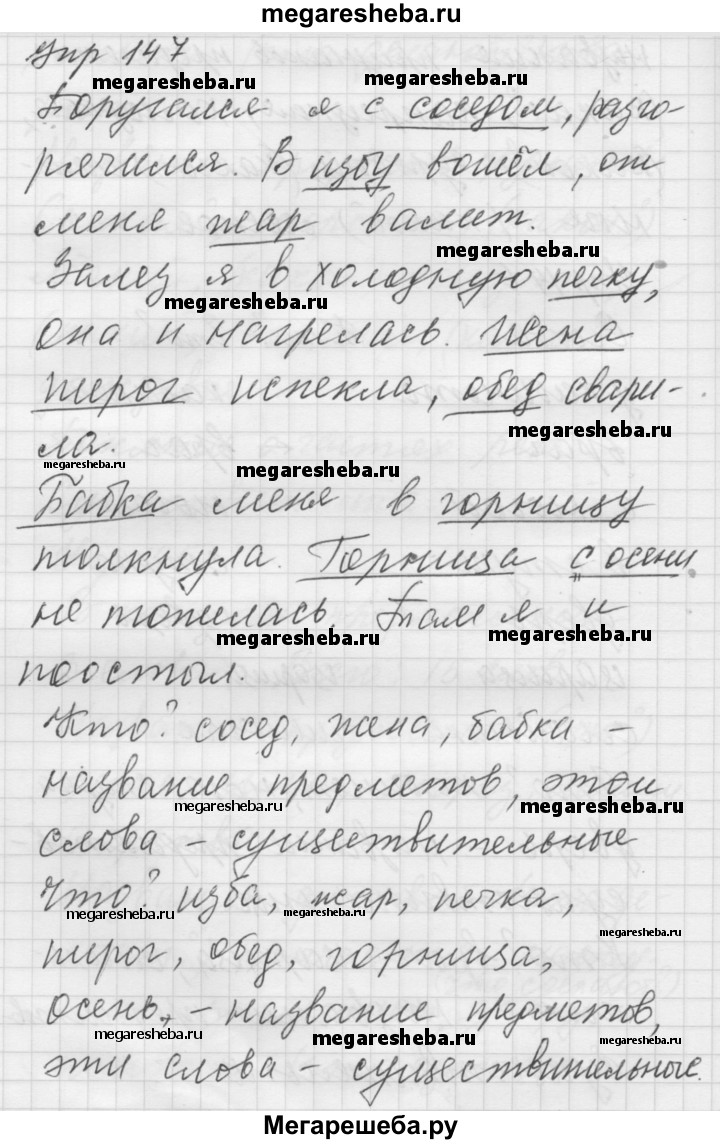 megaresheba.ru
упр 147
megaresheba.ru megaresheba.ru
Поругался я с соседом, разго-
рячился. В избу вошёл, от
меня жар валит.
megaresheba.ru
Залез я в холодную печку,
megaresheba.ru
она и нагрелась. Жена
пирог испекла, обед свари-
megaresheba.ru
ла.
megaresheba.ru megaresheba.ru
Бабка меня в горницу
толкнула. Горница с осени
не топилась. Там я и
megaresheba.ru megaresheba.ru
поостыл.
Кто? сосед, жена, бабка –
название предметов, эти
megaresheba.ru megaresheba.ru
слова – существительные
Что? изба, жар, печка,
megaresheba.ru megaresheba.ru
пирог, обед, горница,
megaresheba.ru
осень, – название предметов,
megaresheba.ru megaresheba.ru megaresheba.ru
эти слова – существительные.
Мегарешеба.ру